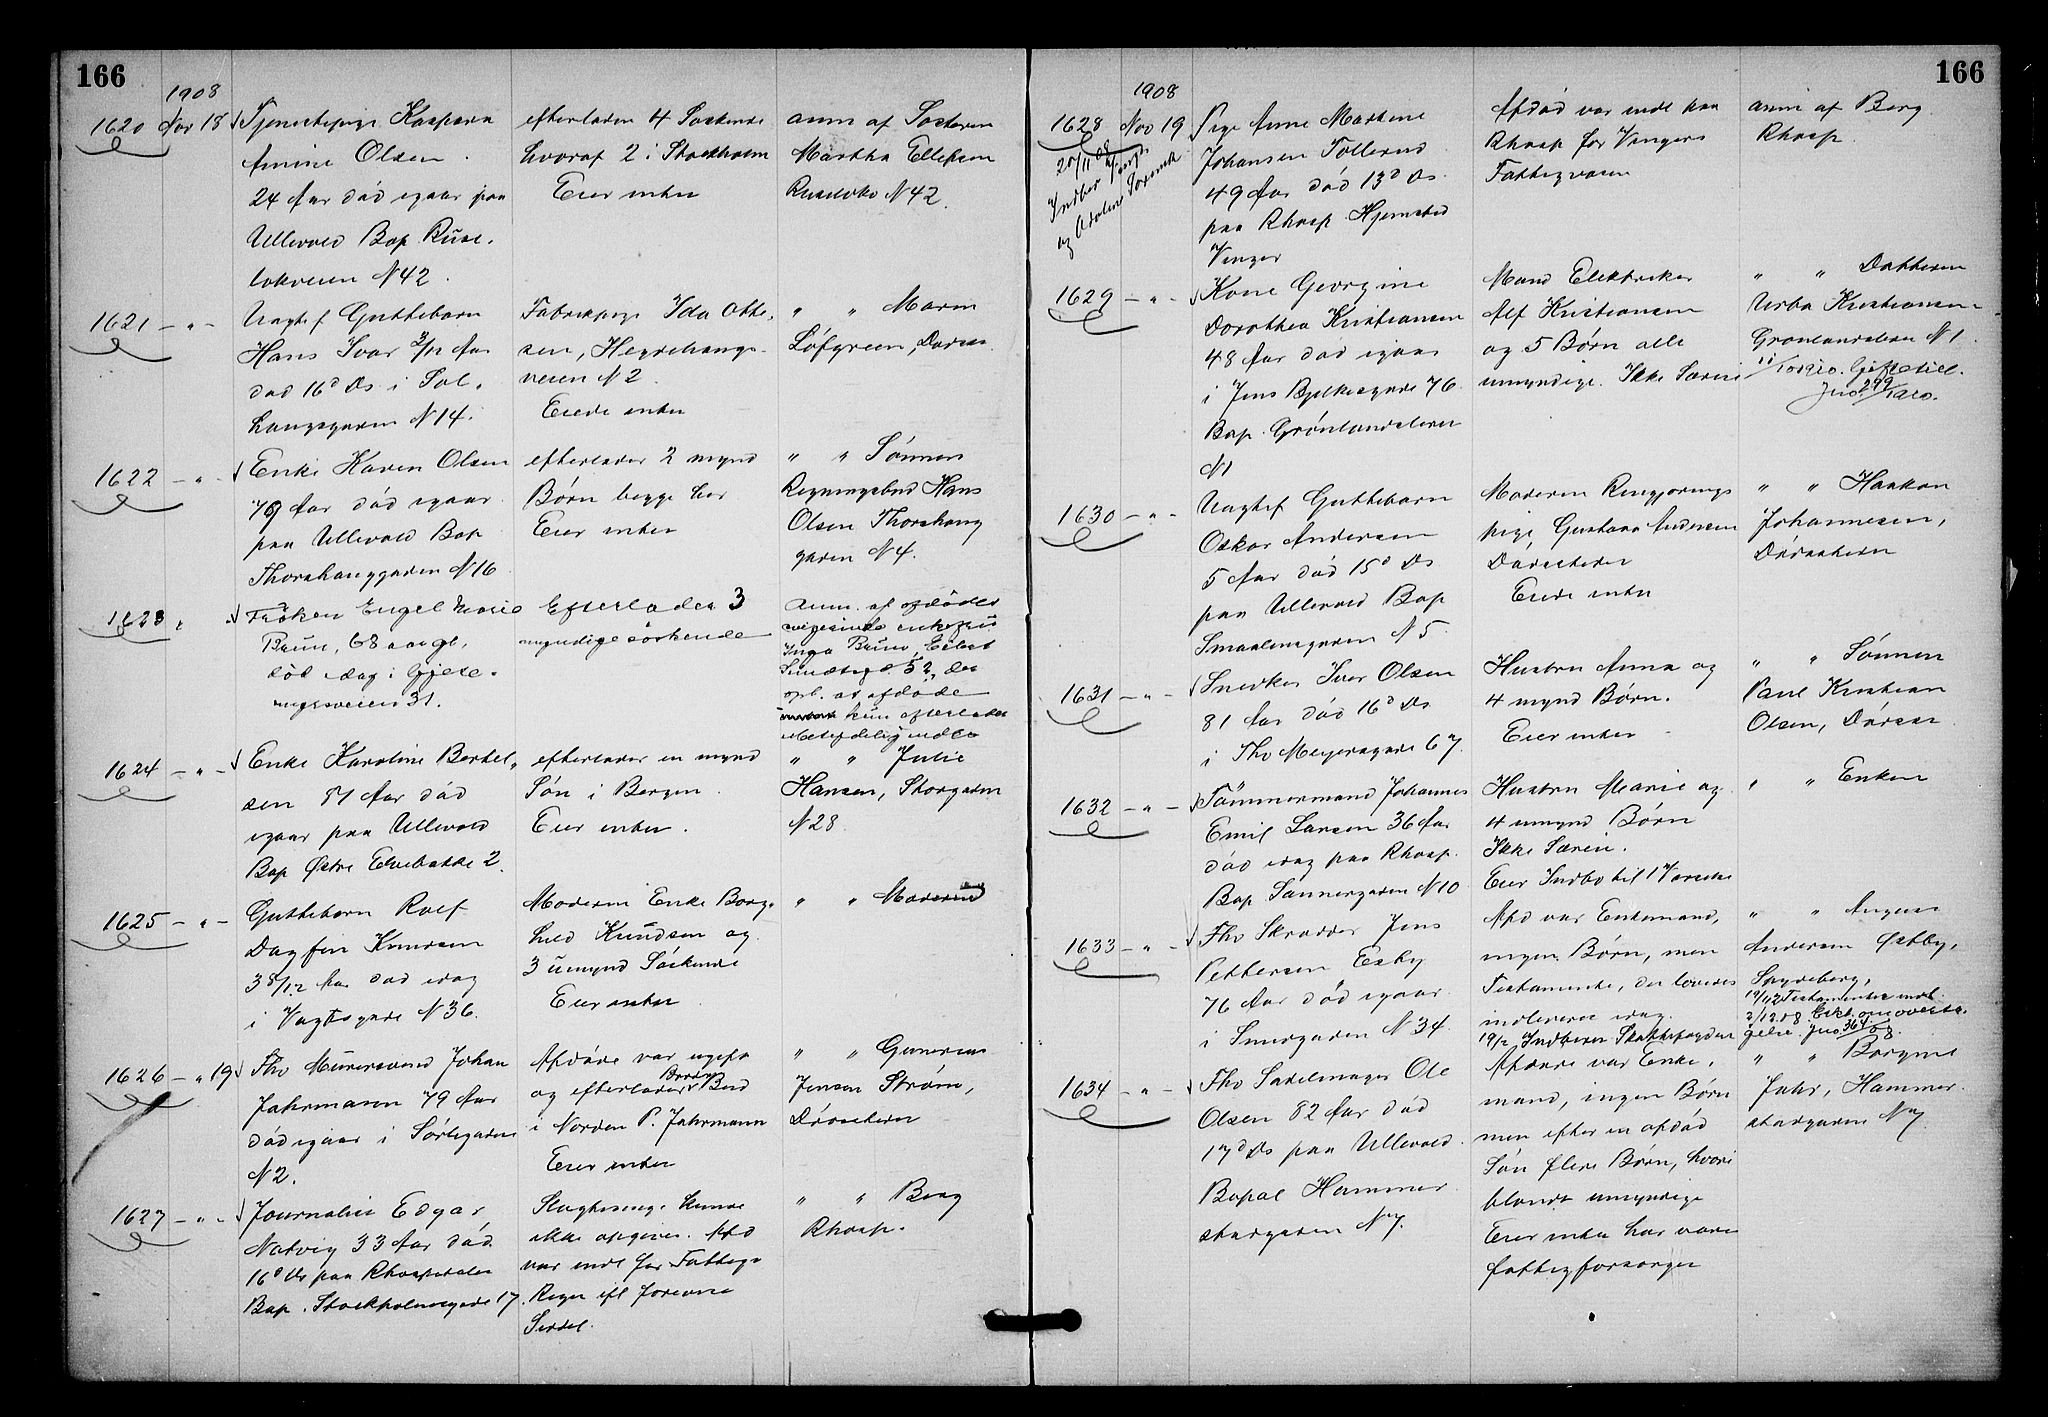 166
1908
1620 Nov 18 Tjenestepige Kaspara
Amine Olsen
24 Aar död igaar paa
Ullevold Bop Ruse-
lokveien N42
efterlader 4 Söskende
hvoraf 2 i Stockholm
Eier intet
anm af Søsteren
Martha Ellefsen
Ruseløkv N42
1621 - " - Uægtef Guttebarn
Hans Ivar 3/12 Aar
död 16d Ds i Sol-
haugsgaden N14.
Fabrikpige Ida Otte-
sen,
veien N2
Eiede intet
" " Maren
Löfgreen,
1622 - " - Enke Karen Olsen
79 Aar död igaar
paa Ullevold Bop
Thorshauggaden N16
efterlader 2 mynd
Børn begge her
Eier intet
" " Sönnen
Regningsbud Hans
Olsen Thorshaug
gaden N4.
1623 " Frøken Engel Marie
Bruun, 68 aar gl,
död idag i Gjete-
myrsveien 31.
Efterlader 3
myndige söskende
Anm. af afdødes
svigerinde enkefru
Inga Bruun, Eilert
Sundtsgd. 52, der
opl. at afdøde
kun efterlader
ubetydelig indbo
1624 - " - Enke Karoline Bertel-
sen 51 Aar död
igaar paa Ullevold
Bop Østre Elvebakke 2
efterlader en mynd
Søn i Bergen
Eier intet.
" " Julie
Hansen, Storgaden
N28
1625 - " - Guttebarn Rolf
Dagfin Knudsen
3 5/12 Aar död idag
i Vogtsgade N36.
Moderen Enke Borg-
hild Knudsen og
3 umynd Söskende
Eier intet
" " Moderen
1626 - " 19 Fhv Murersvend Johan
Jahrmann 79 Aar
död igaar i Sørligaden
N2.
Afdøde var ugift
og efterlader Broder
i Norden P. Jahrmann
Eier intet
" " Gunerius
Jensen Strøm,
Dörstokern
1627 - " - Journalist Edgar
Natvig 33 Aar död
16d Ds paa Rhospitalet
Bop. Stockholmsgade 17
Slægtninge kunde
ikke opgives. Afd
var indl for Fattigv
Regn ifl foreviste
Seddel.
" " Borg
Rhosp.
166
1908
1628 Nov 19 Pige Anne Martine
Johansen Tollerud
49 Aar död 13d Ds
paa Rhosp Hjemsted
Vinger
20/11 08
Indber Vinger
og Odalens Sorensk
Afdød var indl paa
Rhosp for Vingers
Fattigvæsen
anm af Borg
Rhosp.
1629 - " - Kone Georgine
Dorothea Kristiansen
48 Aar död igaar
i Jens Bjelkesgade 76
Bop. Grönlandsleret
N1
Mand Elektriker
Alf Kristiansen
og 5 Børn alle
umyndige. Ikke Særeie
" " Datteren
Urba Kristiansen
Grønlandsleret N1
11/10 1910. Giftetill.
Jno 299/1910.
1630 - " - Uægtef Guttebarn
Oskar Andersen
5 Aar död 15d Ds
paa Ullevold Bop
Smaalensgaden N5.
Moderen Rengjørings
pige Gustava Andersen
Eiede intet
" " Haakon
Johannesen,
1631 - " - Snedker Iver Olsen
81 Aar död 16d Ds
i Thv Meyersgade 67
Hustru Anna og
4 mynd Børn.
Eier intet -
" " Sönnen
Paul Kristian
Olsen,
1632 - " - Tömmermand Johannes
Emil Larsen 36 Aar
död idag paa Rhosp.
Bop Sannergaden N10
Hustru Marie og
4 umynd Børn
Ikke Særeie.
Eier Indbo til 1 Værelse
" " Enken
1633 - " - Fhv Skrædder Jens
Pettersen Esby
76 Aar död igaar
i Smergaden N34
Afd var Enkemand,
ingen Børn, men
Testamente, der loves
indleveres idag.
19/12 Indberen Skattefogden
" " August
Andersen Østby,
Spydeberg,
19/11 Testamentet indl.
2/12.08. Erkl. om overta-
gelse. Jno 364/08.
1634 - " - Fhv Sadelmager Ole
Olsen 82 Aar död
17d Ds paa Ullevold
Bopæl Hammer
stadgaden N7.
Afdøde var Enke-
mand, ingen Børn
men efter en afdød
Søn flere Børn, hvori
blandt umyndige
Eier intet har været
fattigforsørget
" " Borgine
Jahr, Hammer
stadgaden N7